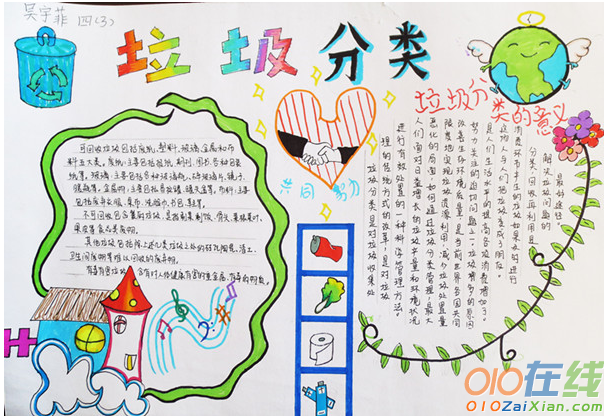 吴宇菲 四(3)
垃圾分类
垃圾分
类的意义
可回收垃圾包括废纸、塑料、玻璃、金属和布
料五大类。废纸:主要包括报纸、期刊、图书、各种包装
纸等。玻璃:主要包括各种玻璃瓶、碎玻璃片、镜子、
暖瓶等。金属物:主要包括易拉罐、罐头盒等。布料:主要
包括废弃衣服、桌布、洗脸巾、书包、鞋等。
不可回收包含剩菜剩饭、骨头、菜根菜叶、
果皮等食品类废物。
其他垃圾包括除上述几类垃圾之外的砖瓦陶瓷、渣土、
卫生间废弃等难以回收的废弃物。
有毒有害垃圾:含有对人体健康有害的重金属、有毒的物质。
共同努力
垃圾分类是对垃圾收集处
理的传统方式的改革,是对垃圾
进行有效处置的一种科学管理方法。
人们面对日益增长的垃圾产量和环境状况
恶化的局面,如何通过垃圾分类管理,最大
限度地实现垃圾资源利用,减少垃圾处置量
改善生存环境质量,是当前世界各国共同
的迫切问题之一。垃圾增多的原因
是人们生活水平的提高,各种消费增加了。
消费环节产生的垃圾如果及时进行
分类、回收再利用是
解决垃圾问题的
最好途径
010在线
010ZaiXian.com